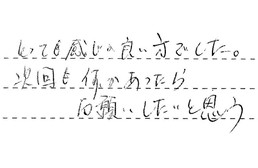 とても感じの良い方でした。
次回も何かあったら
お願いしたいと思う